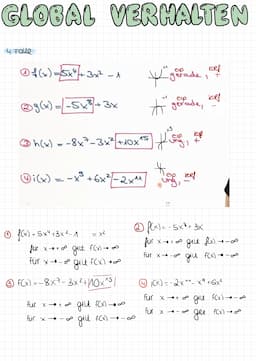 GLOBAL VERHALTEN
4 Fälle
① f(x) = 5x⁴ + 3x² - 1
gerade, +
② g(x) = -5x⁸ + 3x
gerade, -
③ h(x) = -8x⁷ - 3x³ + 10x¹⁵
ung, +
④ i(x) = -x⁹ + 6x² - 2x¹¹
ung, -
① f(x) = 5x⁴ + 3x² - 1
für x → + ∞ gilt f(x) → ∞
für x → - ∞ gilt f(x) → ∞
② f(x) = -5x⁸ + 3x
für x → + ∞ gilt f(x) → - ∞
für x → - ∞ gilt f(x) → - ∞
③ f(x) = -8x⁷ - 3x³ + 10x¹⁵
für x → ∞ gilt f(x) → ∞
für x → - ∞ gilt f(x) → - ∞
④ f(x) = -2x¹¹ - x⁹ + 6x²
für x → + ∞ gilt f(x) → - ∞
für x → - ∞ gilt f(x) → ∞